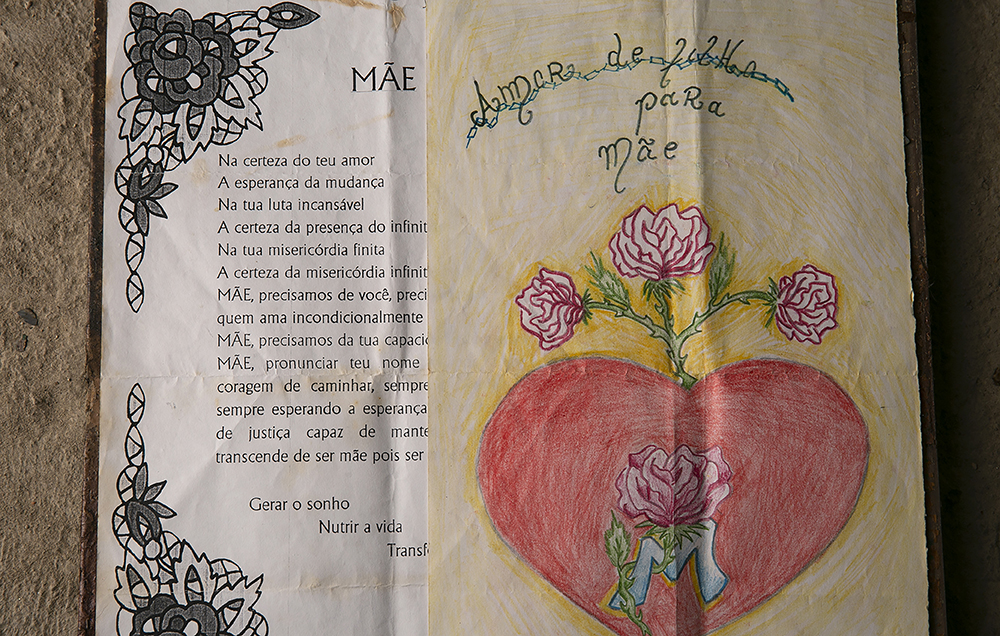 MÃE
Na certeza do teu amor
A esperança da mudança
Na tua luta incansável
A certeza da presença do infinit
Na tua misericórdia finita
A certeza da misericórdia infinit
MÃE, precisamos de você, preci
quem ama incondicionalmente
MÃE, precisamos da tua capacid
MÃE, pronunciar teu nome
coragem de caminhar, sempre
sempre esperando a esperança
de justiça capaz de mante
transcende de ser mãe pois ser
Gerar o sonho
Nutrir a vida
Transfo
Amor de filha
para
mãe
M